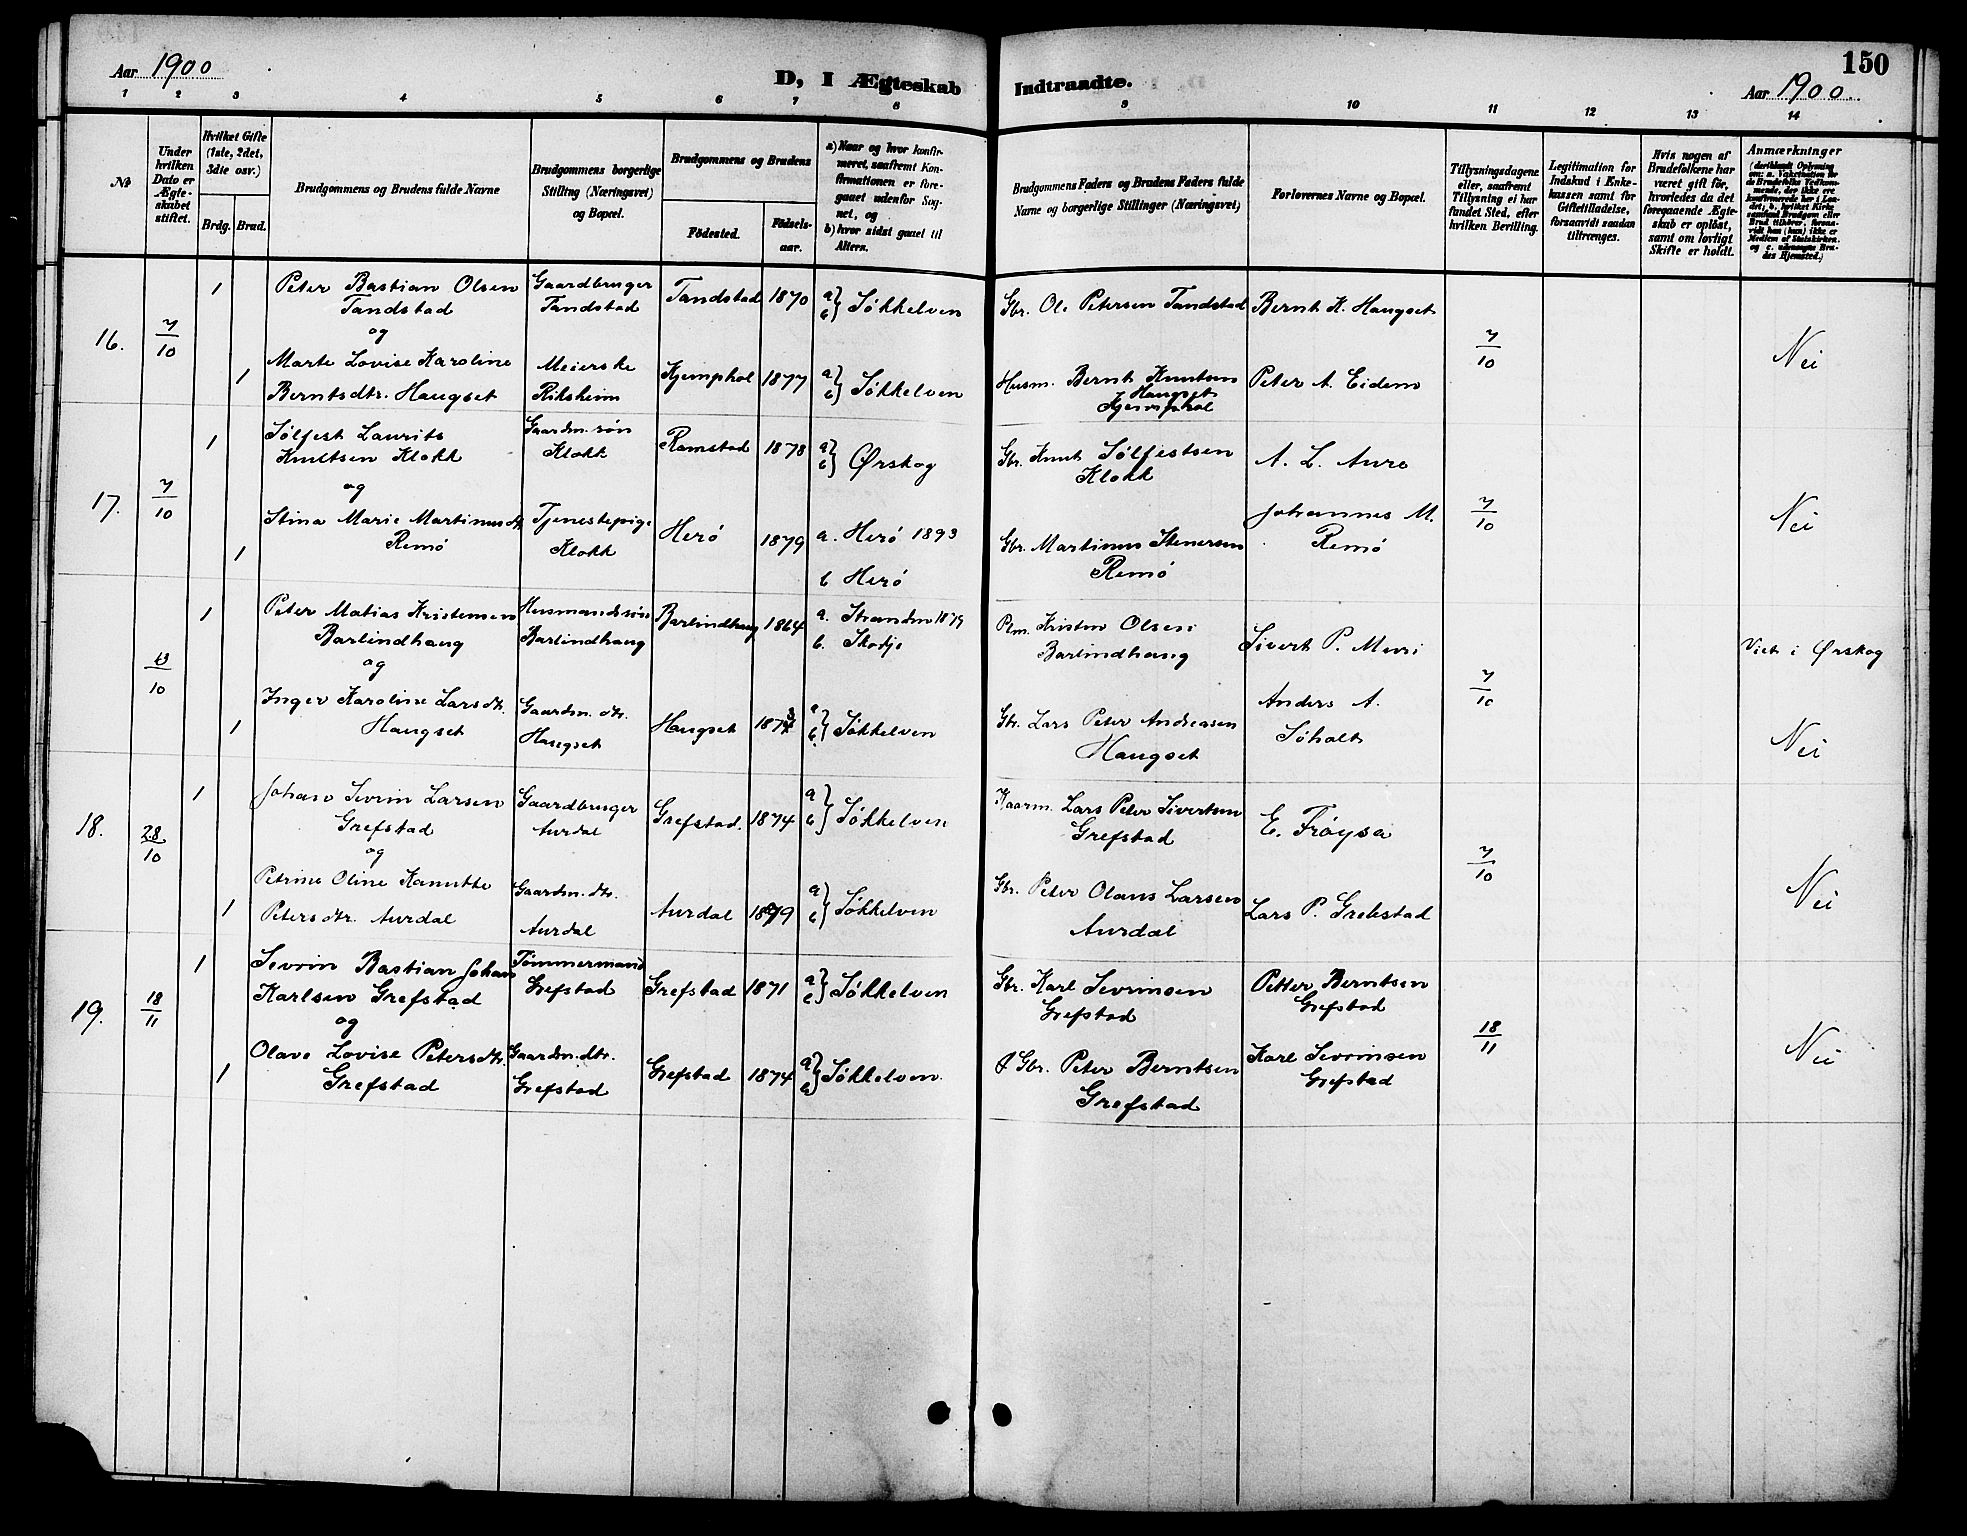 150
Aar 1900
D, I Ægteskab Indtraadte.
Aar 1900.
1 2 3 4 5 6 7 8 9 10 11 12 13 14
№
Under hvilken Dato er Ægteskabet stiftet.
Hvilket Gifte (1ste, 2det, 3die osv.)
Brdg. Brud.
Brudgommens og Brudens fulde Navne
Brudgommens borgerlige Stilling (Næringsvei) og Bopæl.
Brudgommens og Brudens
Fødested.
Fødselsaar.
a) Naar og hvor konfirmeret, saafremt Konfirmationen er foregaaet udenfor Sognet, og
b) hvor sidst gaaet til Alters.
Brudgommens Faders og Brudens Faders fulde Navne og borgerlige Stillinger (Næringsvei)
Forlovernes Navne og Bopæl.
Tillysningsdagene eller, saafremt Tillysning ei har fundet Sted, efter hvilken Bevilling.
Legitimation for Indskud i Enkekassen samt for Giftetilladelse, forsaavidt saadan tiltrænges.
Hvis nogen af Brudefolkene har været gift før, hvorledes da det foregaaende Ægteskab er opløst, samt om lovligt Skifte er holdt.
Anmærkninger
16. 7/10
1 Peter Bastian Olsen Tandstad Gaardbruger Tandstad Tandstad 1870 a } b } Søkkelven Gbr. Ole Petersen Tandstad Bernt K. Haugset 7/10 Nei
og
1 Marte Lovise Karoline Berntsdtr. Haugset Meierske Riksheim Kjemphol 1877 a } b } Søkkelven Husm. Bernt Knutsen Haugset Kjemphol Peter A. Eidem
17. 7/10
1 Sølfest Laurits Knutsen Klokk Gaardm.søn Klokk Ramstad 1878 a } b } Ørskog Gbr. Knut Sølfestsen Klokk A. L. Aure 7/10 Nei
og
1 Stina Marie Martinusdtr. Remø Tjenestepige Klokk Herø 1879 a. Herø 1893 b Herø Gbr. Martinus Stenersen Remø Johannes M. Remø
13/10
1 Peter Matias Kristensen Barlindhaug Husmandssøn Barlindhaug Barlindhaug 1864 a. Stranden 1879 b. Skodje Plm. Kristen Olsen Barlindhaug Sivert P. Meri 7/10 Viet i Ørskog
og
1 Inger Karoline Larsdtr. Haugset Gaardm. dtr. Haugset Haugset a } b } Søkkelven Gbr. Lars Peter Andreasen Haugset Anders A. Søholt Nei
18. 28/10
1 Johan Sevrin Larsen Grefstad Gaardbruger Aurdal Grefstad. 1874 a } b } Søkkelven Kaarm. Lars Peter Sivertsen Grefstad E. Frøysa 7/10 Nei
og
1 Petrine Oline Kanutte Petersdtr. Aurdal Gaardm. dtr. Aurdal Aurdal 1879 a } b } Søkkelven Gbr. Peter Olaus Larsen Aurdal Lars P. Grebstad
19. 18/11
1 Sevrin Bastian Johan Karlsen Grefstad Tømmermand Grefstad Grefstad 1871 a } b } Søkkelven Gbr. Karl Sevrinsen Grefstad Petter Berntsen Grefstad 18/11 Nei
og
1 Olave Lovise Petersdtr. Grefstad Gaardm. dtr. Grefstad Grefstad 1874 a } b } Søkkelven. Gbr. Peter Berntsen Grefstad Karl Sevrinsen Grefstad